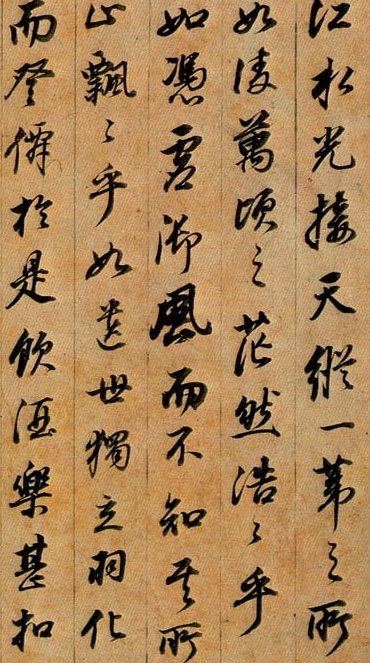 江水光接天縱一葦之所
如凌萬頃之茫然浩〻乎
如憑虛御風而不知其所
止飄〻乎如遺世獨立羽化
而登僊於是飲酒樂甚扣